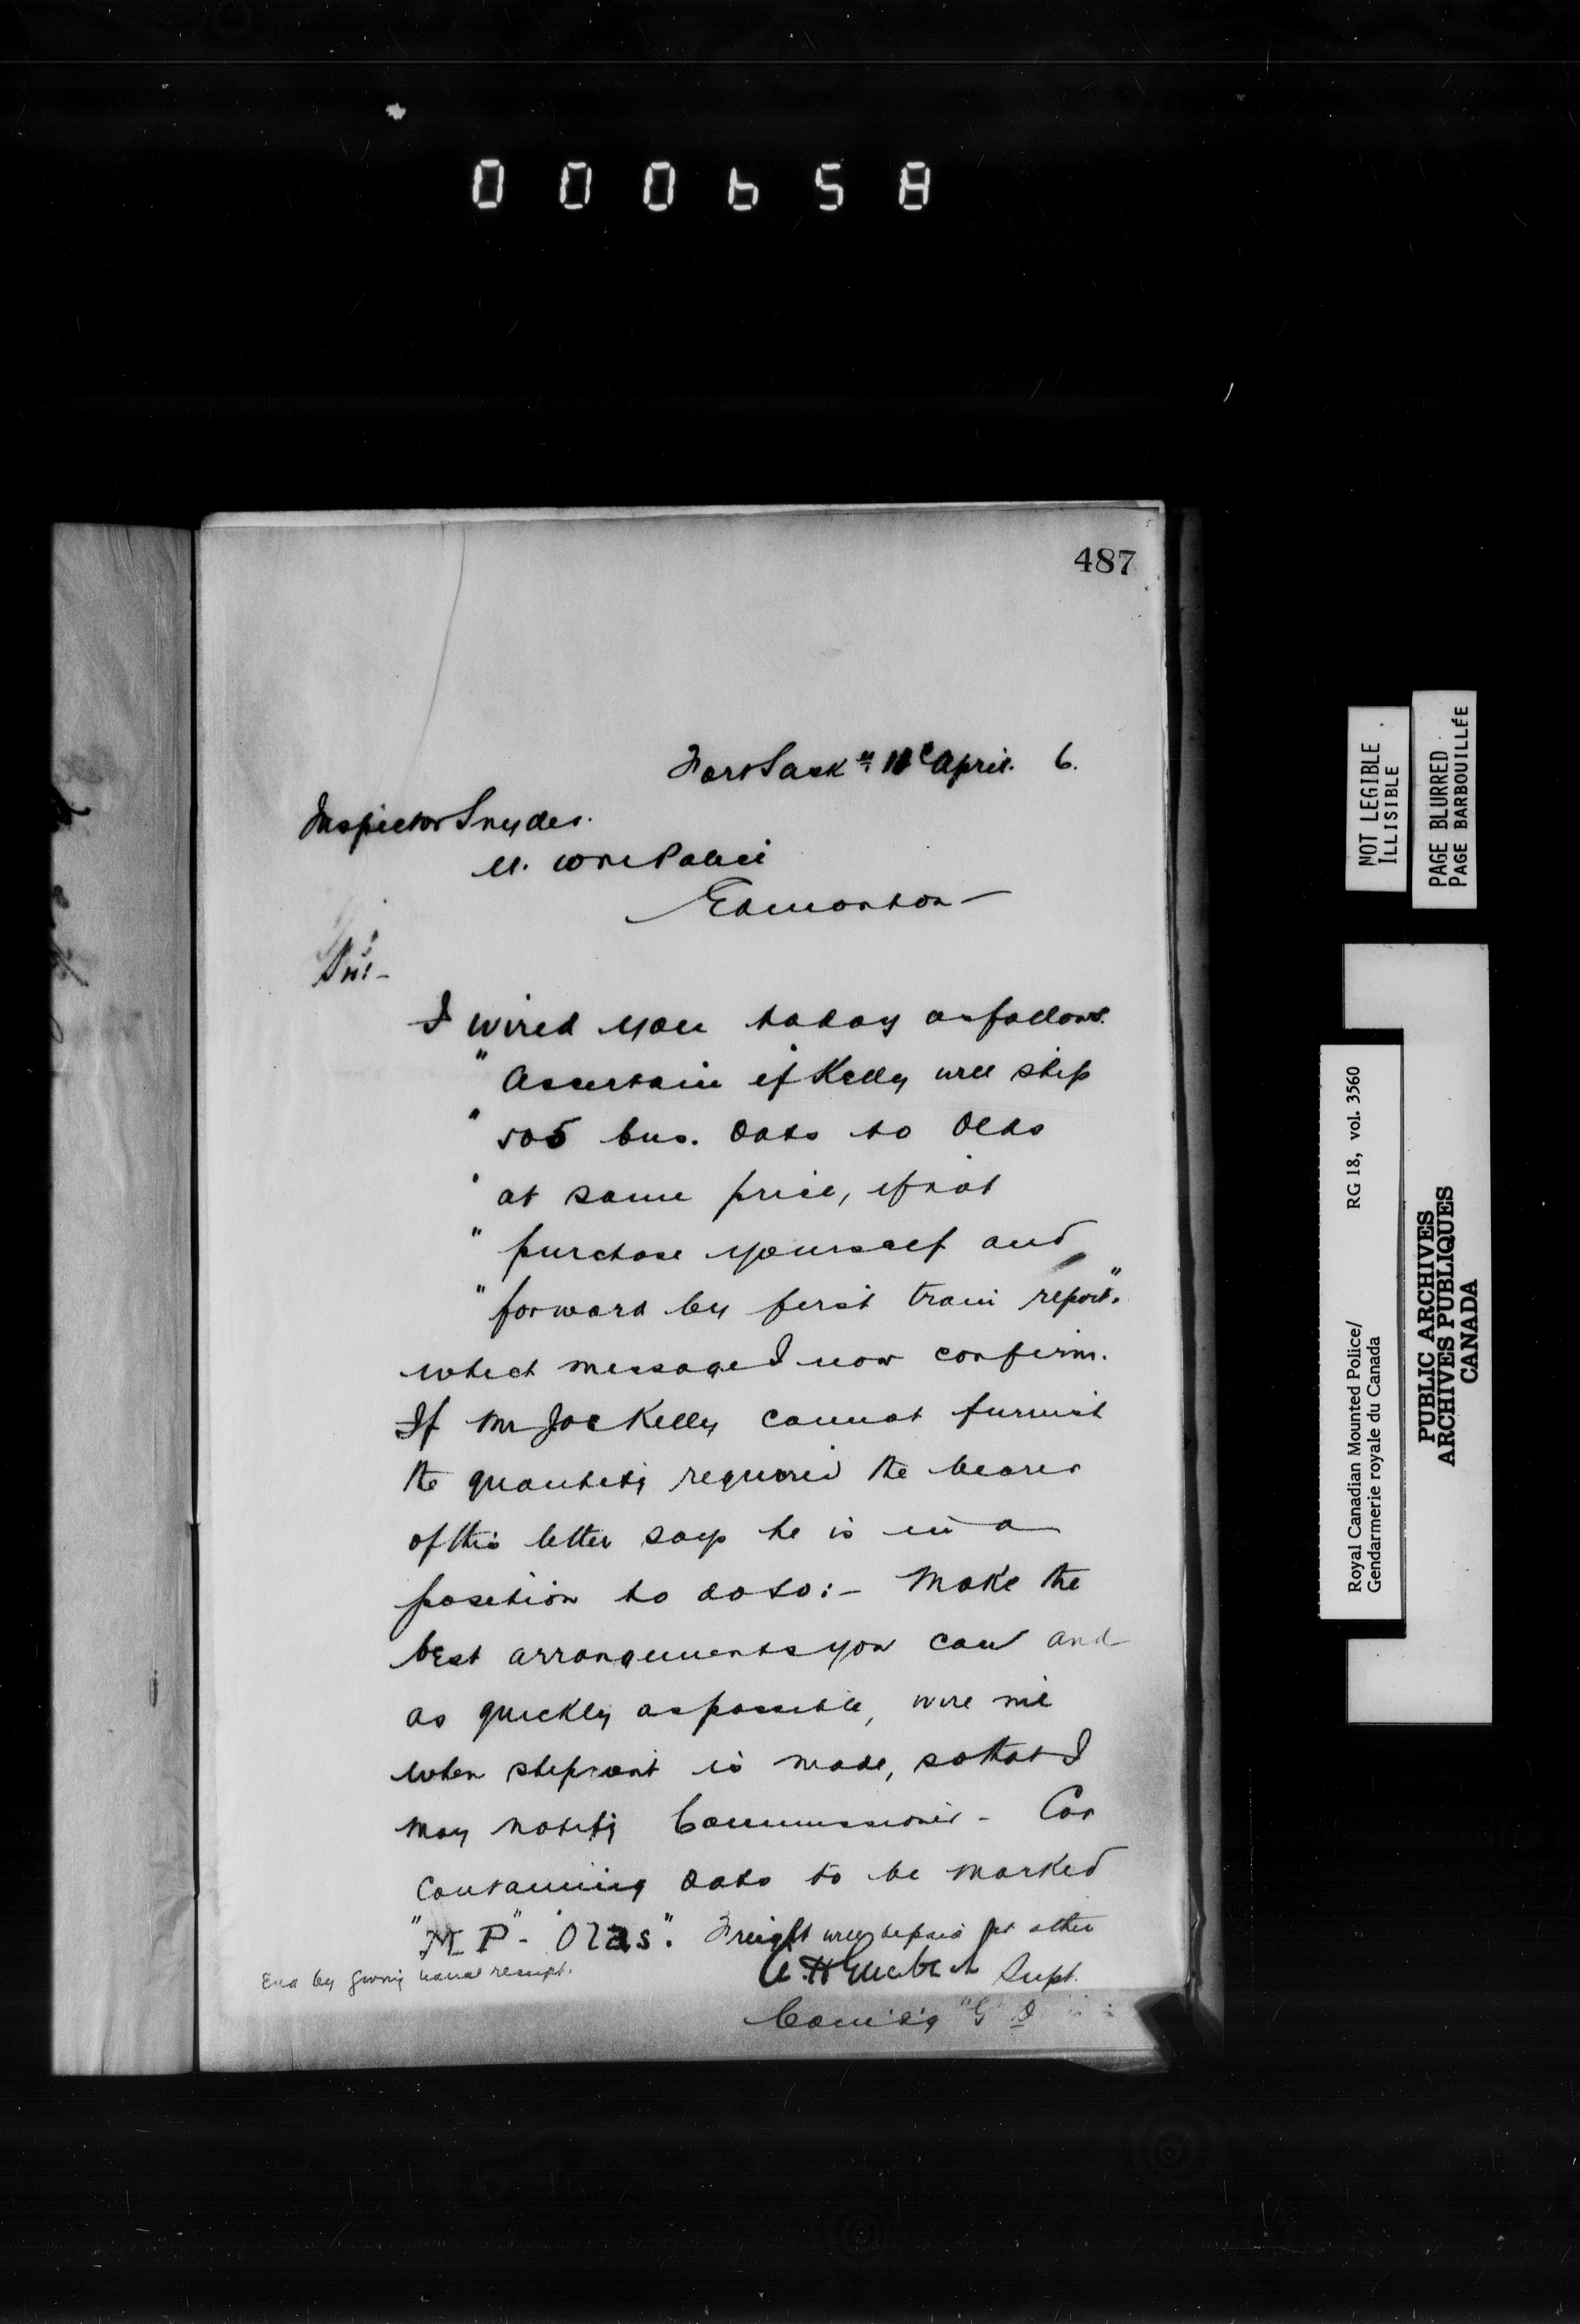 000658
487
Fort Sask n 18 April. 6.
Inspector Snyder.
N. W M Police
Edmonton —
Sir:-
I wired you today as follows.
" Ascertain if Kelly will ship
" 505 bus. Oats to Olds
" at same price, if not
" purchase yourself and
" forward by first train report".
which message I now confirm.
If Mr Joe Kelly cannot furnish
the quantity required the bearer
of this letter says he is in a
position to do so:- Make the
best arrangements you can and
as quickly as possible, wire me
when shipment is made, so that I
may notify Commissioner - Car
containing Oats to be marked
"M P" - "Olds". Freight will be paid at other
End by giving usual receipt.
Supt.
Comd'g "G" D
NOT LEGIBLE
ILLISIBLE
PAGE BLURRED
PAGE BARBOUILLÉE
Royal Canadian Mounted Police/
Gendarmerie royale du Canada
RG 18, vol. 3560
PUBLIC ARCHIVES
ARCHIVES PUBLIQUES
CANADA